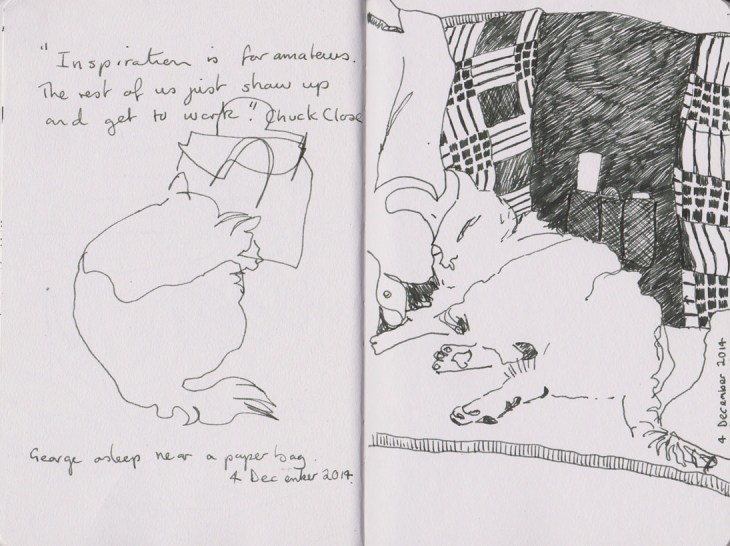 "Inspiration is for amateurs.
The rest of us just show up
and get to work." Chuck Close
George asleep near a paper bag.
4 December 2014.
4 December 2014